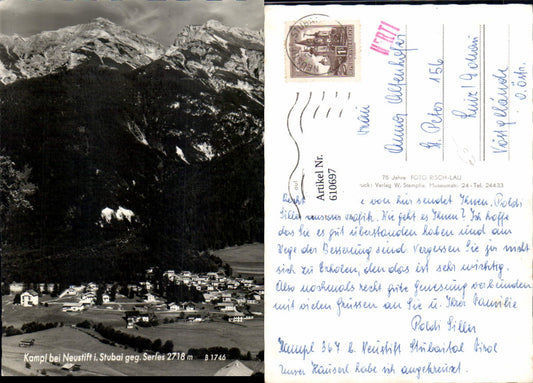 Kampl bei Neustift i. Stubai geg. Serles 2718 m B 1746
Artikel Nr.
610697
Frau
St. Peter 156
Linz/Donau
Vöstgelände
O. Öst.
75 Jahre FOTO RISCH-LAU
Verlag W. Stempfle, Museumstr. 24 - Tel. 24433
von hir sendet Ihnen, Poldi
Siller unserer Trafik. Wie geht es Ihnen? Ich hoffe
das Sie es gut überstanden haben und am
Wege der Besserung sind. Vergessen Sie ja nicht
sich zu Erholen, den das ist sehr wichtig.
Also nochmals recht gute Genesung verbunden
mit vielen Grüssen an Sie u. Ihrer Familie
Poldi Siller
Kampl 367 b. Neustift Stubaital Tirol
Unser Häuserl habe ich angekreuzt.